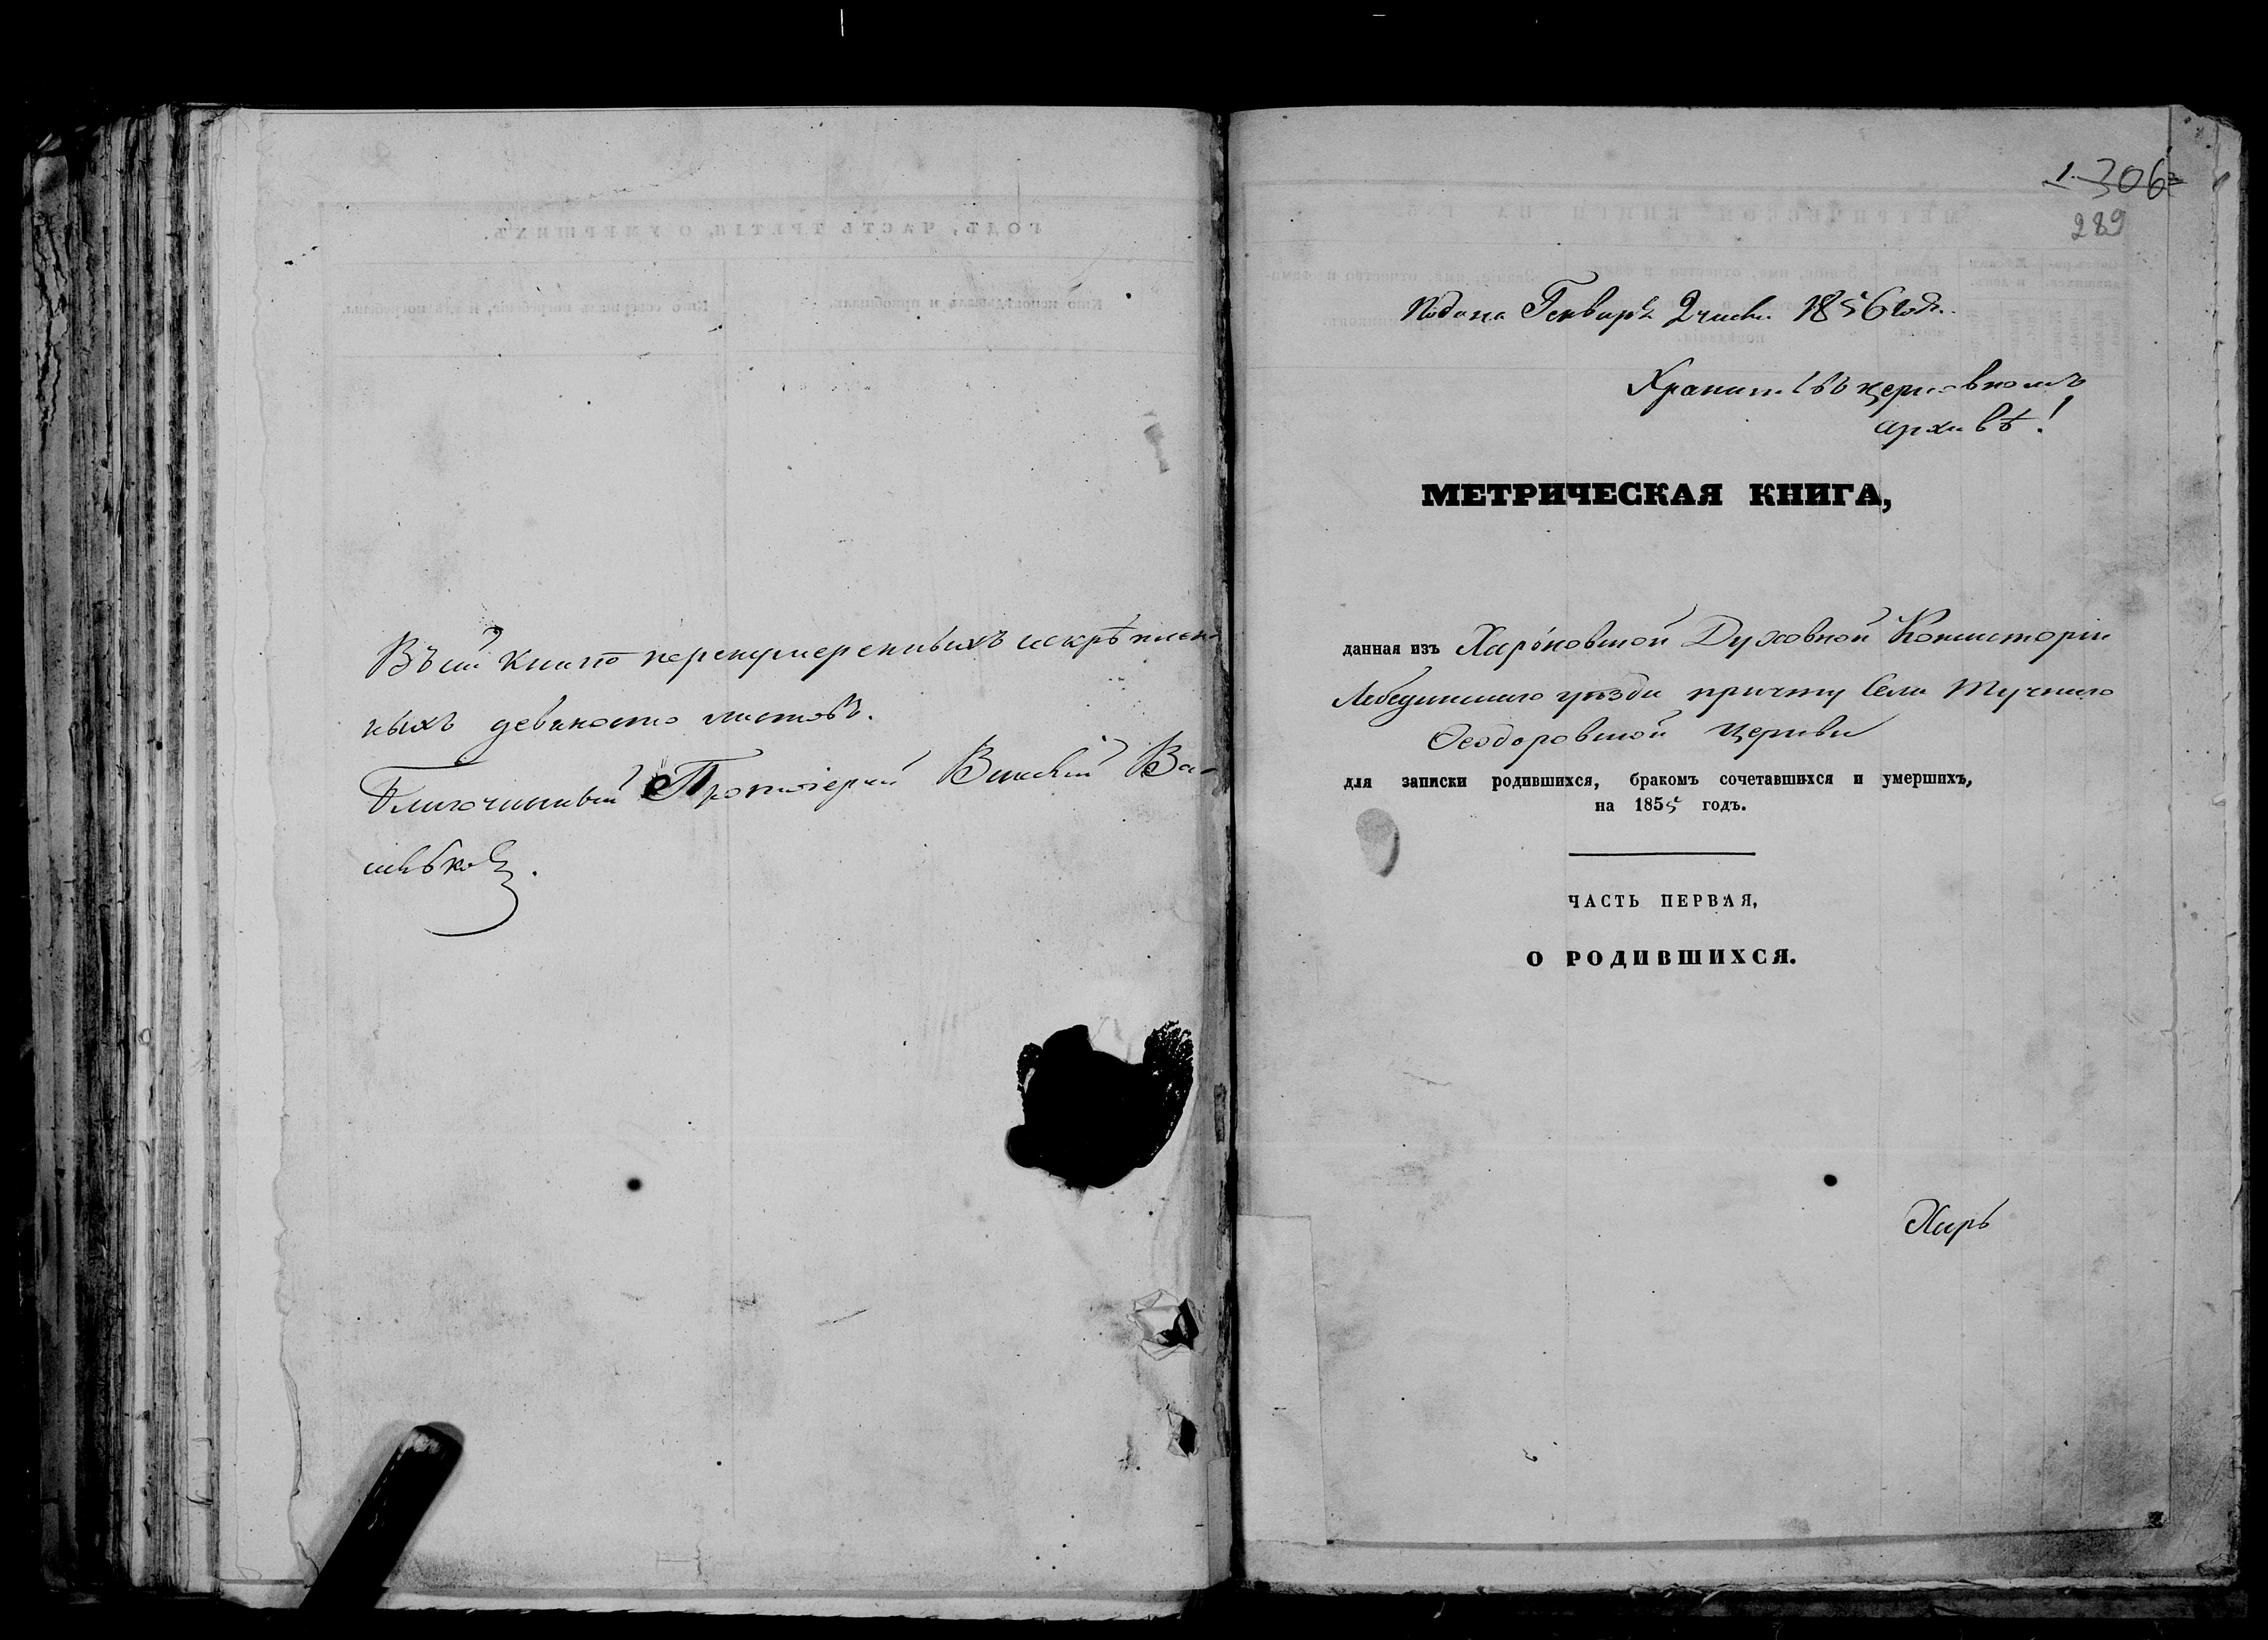 Въ сей книгѣ перенумеренныхъ искрѣплен
ныхъ девяносто листовъ.
Благочинный Протоіерей Василій Ва-
сильков.
1. 306
289
Подана Генваря 2 числа 1856 года.
Хранить въ церковномъ
архивѣ!
МЕТРИЧЕСКАЯ КНИГА,
данная изъ Харьковской Духовной Консисторіи
Лебединскаго уѣзда причту Села Тучнаго
Ѳеодоровской Церкви
для записки родившихся, бракомъ сочетавшихся и умершихъ,
на 1855 годъ.
ЧАСТЬ ПЕРВАЯ,
О РОДИВШИХСЯ.
Харь